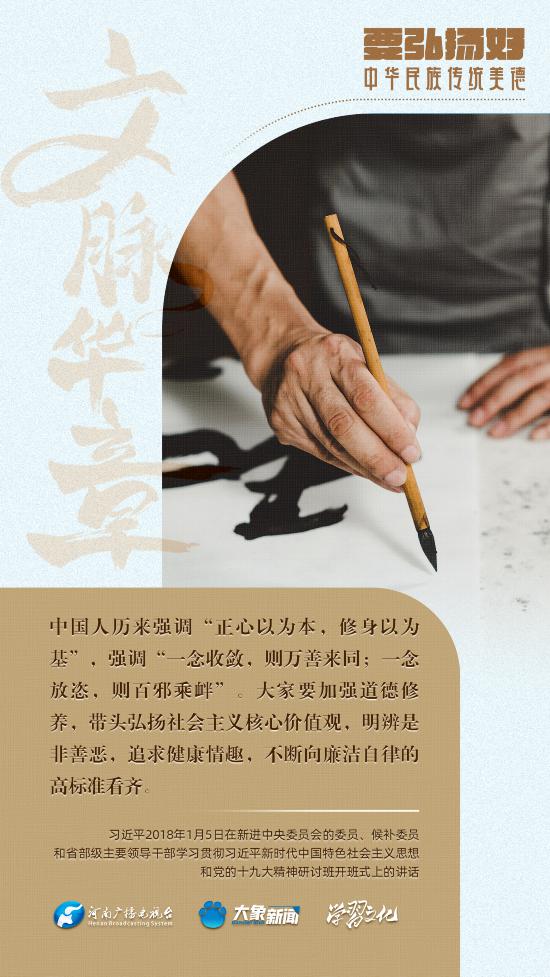 要弘扬好
中华民族传统美德
文脉华章
中国人历来强调“正心以为本，修身以为
基”，强调“一念收敛，则万善来同；一念
放恣，则百邪乘衅”。大家要加强道德修
养，带头弘扬社会主义核心价值观，明辨是
非善恶，追求健康情趣，不断向廉洁自律的
高标准看齐。
习近平2018年1月5日在新进中央委员会的委员、候补委员
和省部级主要领导干部学习贯彻习近平新时代中国特色社会主义思想
和党的十九大精神研讨班开班式上的讲话
河南广播电视台
Henan Broadcasting System
大象新闻
学习文化